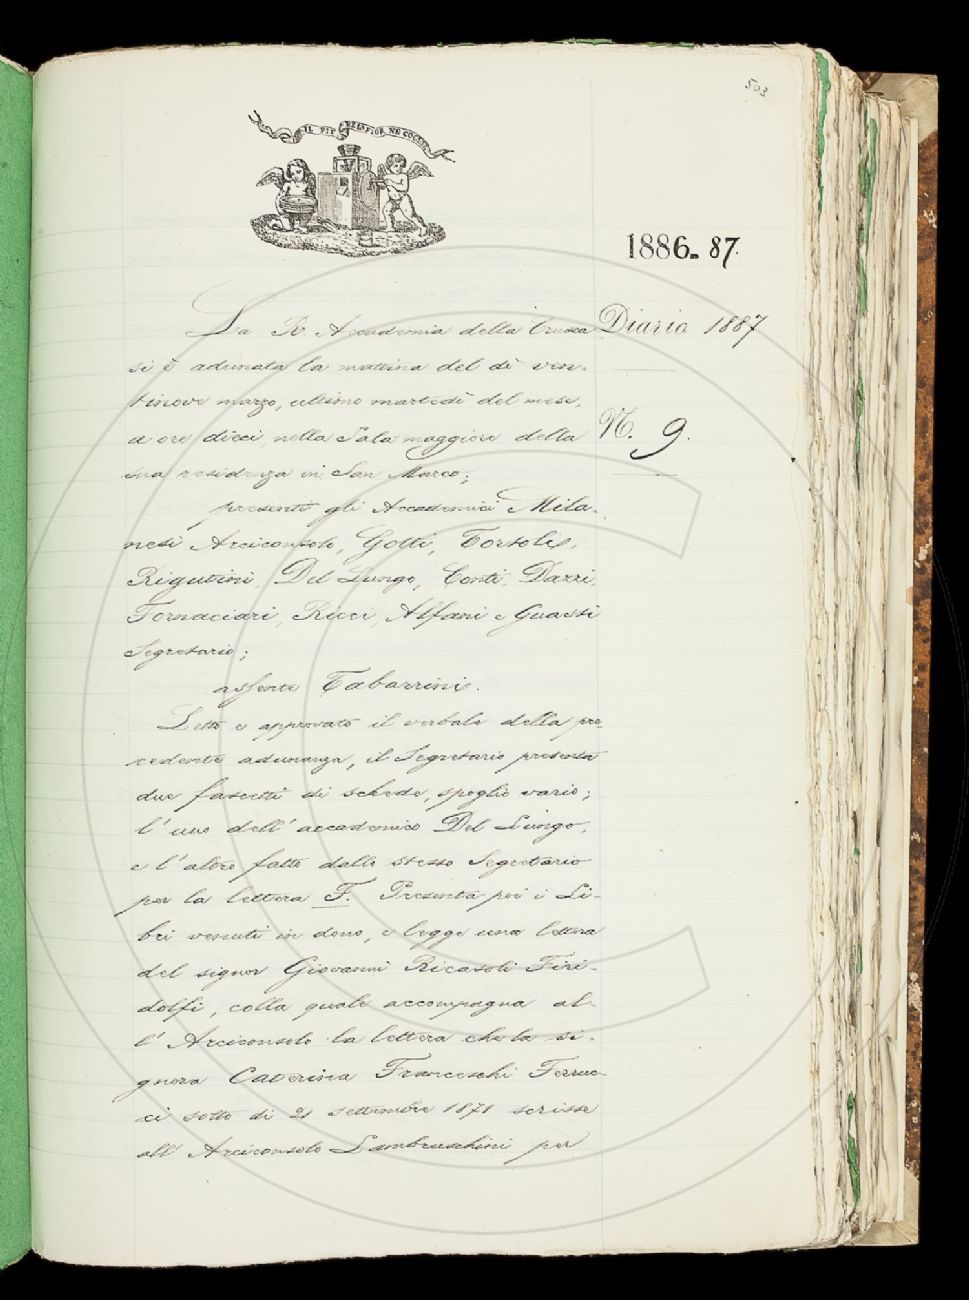 503
IL PIÙ BEL FIOR NE COGLIE
1886-87.
Diario 1887
N. 9.
La R. Accademia della Crusca
si è adunata la mattina del dì ven-
tinove marzo, ultimo martedì del mese,
a ore dieci, nella Sala maggiore della
sua residenza in San Marco;
presenti gli Accademici Mila-
nesi Arciconsolo, Gotti, Tortoli,
Rigutini, Del Lungo, Conti, Dazzi,
Fornaciari, Ricci, Alfani e Guasti
Segretario;
assente Tabarrini.
Letto e approvato il verbale della pre-
cedente adunanza, il Segretario presenta
due fascetti di schede, spoglio vario;
l'uno dell'accademico Del Lungo,
e l'altro fatto dallo stesso Segretario
per la lettera F. Presenta poi i Li-
bri venuti in dono, e legge una lettera
del signor Giovanni Ricasoli Firi-
dolfi, colla quale accompagna al-
l'Arciconsolo la lettera che la si-
gnora Caterina Franceschi Ferruc-
ci sotto di 21 settembre 1871 scrisse
all'Arciconsolo Lambruschini per